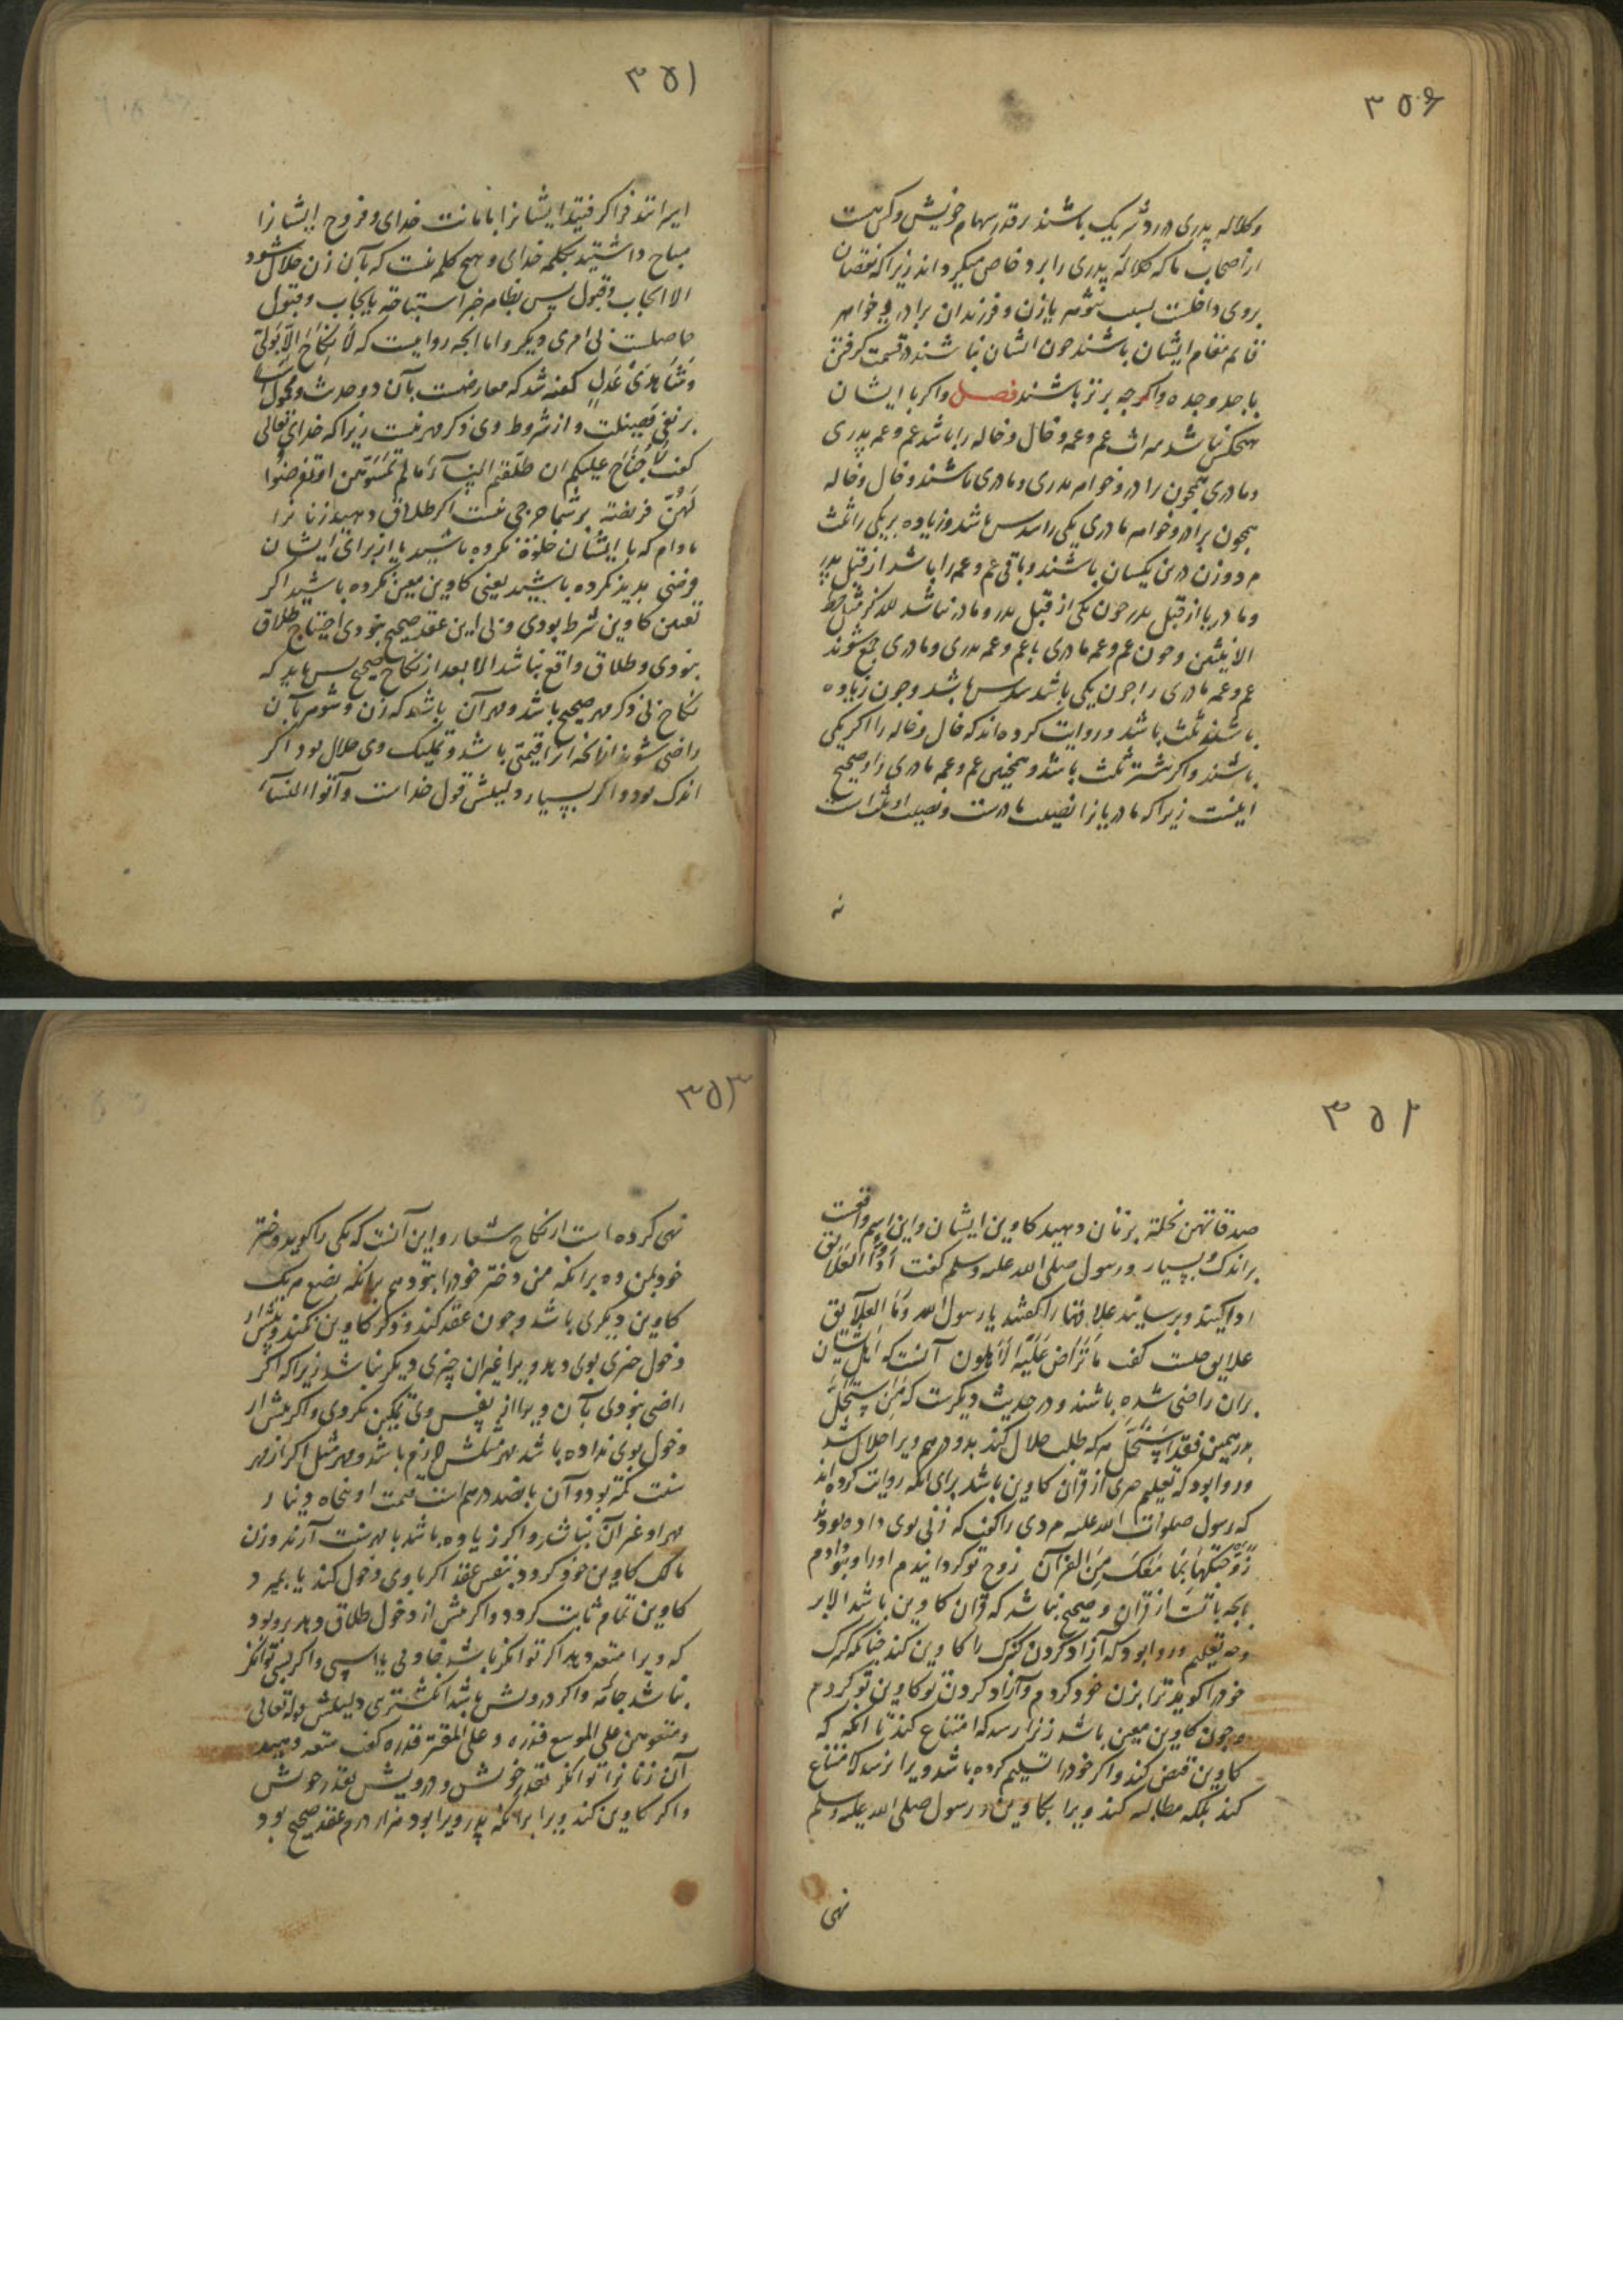 ۳۵۶
وکلاله پدری در رد شریک باشند بر قدر سهام خویش و کس هست
از اصحاب ما که کلالهٔ پدری را برد خاص میگرداند زیرا که نقصان
بروی داخلست بسبب شوهر یا زن و فرزندان برادر و خواهر
قایم مقام ایشان باشند چون ایشان نباشند در قسمت کرفتن
با جد و جده و اکرچه برتر باشند فصل و اکر با ایشان
هیچکس نباشد میراث عم و عمه و خال و خاله را باشد عم و عمه پدری
و مادری همچون برادر و خواهر پدری و مادری باشند و خال و خاله
همچون برادر و خواهر مادری یکی را سدس باشد و زیاده بر یکی را ثلث
مرد و زن درین یکسان باشند و باقی عم و عمه را باشد از قبل پدر
و مادر یا از قبل پدر چون یکی از قبل پدر و مادر نباشد للذکر مثل حظ
الانثیین و چون عم و عمه مادری با عم و عمه پدری و مادری جمع شوند
عم و عمه مادری را چون یکی باشد سدس باشد و چون زیاده
باشند ثلث باشد و روایت کرده‌اند که خال و خاله را اکر یکی
باشند و اکر بیشتر ثلث باشد و همچنین عم و عمه مادری را و صحیح
اینست زیرا که مادریانرا نصیب مادرست و نصیب او ثلث است
۳۵۱
ایرانند فراکرفتید ایشانرا بامانت خدای و فروج ایشانرا
مباح داشتید بکلمه خدای و هیچ کلمه نیست که بآن زن حلال شود
الا ایجاب و قبول پس بظاهر خبر استباحه بایجاب و قبول
حاصلست بی امری دیکر و اما انچه روایست که لا نکاح الا بولی
و شاهدی عدل کفته شد که معارضست بآن دو حدیث و محمولست
بر نفی فضیلت و از شروط وی ذکر مهر نیست زیرا که خدای تعالی
کفت لا جناح علیکم ان طلقتم النساء ما لم تمسوهن او تفرضوا
لهن فریضة بر شما حرجی نیست اکر طلاق دهید زنانرا
مادام که با ایشان خلوة نکرده باشید یا از برای ایشان
فرضی پدید نکرده باشید یعنی کاوین معین نکرده باشید اکر
تعیین کاوین شرط بودی و بی این عقد صحیح نبودی احتیاج طلاق
نبودی و طلاق واقع نباشد الا بعد از نکاح صحیح پس باید که
نکاح بی ذکر مهر صحیح باشد و مهر آن باشد که زن و شوهر بآن
راضی شوند از انچه انرا قیمتی باشد و تملیک وی حلال بود اکر
اندک بود و اکر بسیار و دلیلش قول خداست و آتوا النساء
۳۵۲
صدقاتهن نحلة بزنان دهید کاوین ایشان و این اسم واقعست
بر اندک و بسیار و رسول صلی الله علیه وسلم کفت ادوا العلایق
ادا کنید و برسانید علاقتها را کفتند یا رسول الله و ما العلایق
علایق چیست کفت ما تراض علیه الاهلون آنست که اهل ایشان
بران راضی شده باشند و در حدیث دیکرست که من استحل
بدرهمین فقد استحل هر که طلب حلال کند بدو درهم ویرا حلال شد
و روا بود که تعلیم چیزی از قران کاوین باشد برای انکه روایت کرده‌اند
که رسول صلوات الله علیه مردی را کفت که زنی بوی داده بودند
زوجتکها بما معک من القرآن زوج تو کردانیدم او را و بتو دادم
بانچه با تست از قران و صحیح نباشد که قران کاوین باشد الا بر
وجه تعلیم و روا بود که آزاد کردن کنیزک را کاوین کند چنانکه کنیزک
خود را کوید ترا بزن خود کردم و آزاد کردن تو کاوین تو کردم
و چون کاوین معین باشد زنرا رسد که امتناع کند تا انکه که
کاوین قبض کند و اکر خود را تسلیم کرده باشد ویرا نرسد که امتناع
کند بلکه مطالبه کند ویرا بکاوین و رسول صلی الله علیه وسلم
نهی
۳۵۳
نهی کرده است از نکاح شغار و این آنست که یکی را کوید دختر
خود بمن ده بر انکه من دختر خود را بتو دهم بر انکه بضع هر یک
کاوین دیکری باشد و چون عقد کند و ذکر کاوین نکند و پیش از
دخول چیزی بوی دهد ویرا غیر ان چیزی دیکر نباشد زیرا که اکر
راضی نبودی بآن ویرا از نفس وی تمکین نکردی و اکر پیش از
دخول بوی نداده باشد مهر مثلش لازم باشد و مهر مثل اکر از مهر
سنت کمتر بود و آن پانصد درهم است قیمت او پنجاه دینار
مهر او غیر آن نباشد و اکر زیاده باشد با مهر سنت آرند و زن
مالک کاوین خود کردد بنفس عقد اکر با وی دخول کند یا بمیرد
کاوین تمام ثابت کردد و اکر پیش از دخول طلاق دهد روبود
که ویرا متعه دهد اکر توانکر باشد خادمی یا اسپی و اکر توانکر
نباشد جامهٔ و اکر درویش باشد انکشتری دلیلش قوله تعالی
ومتعوهن علی الموسع قدره و علی المقتر قدره کفت متعه دهید
آن زنانرا توانکر بقدر خویش و درویش بقدر خویش
و اکر کاوین کند ویرا بر انکه پدر ویرا بود هزار درم عقد صحیح بود